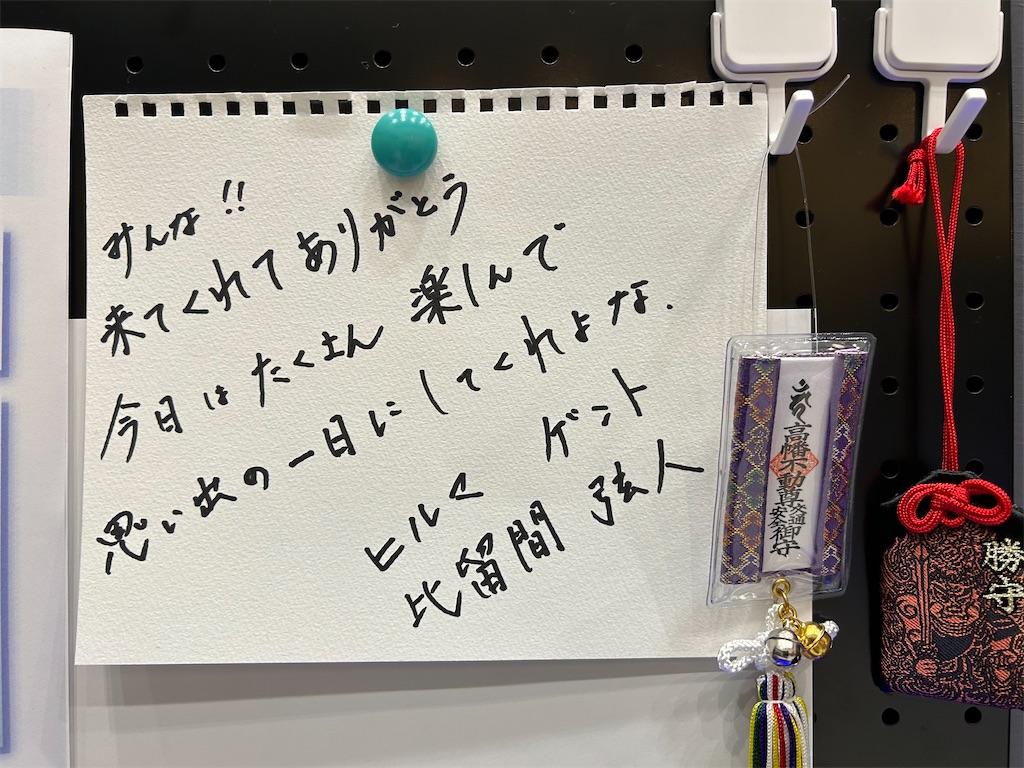 みんな!!
来てくれてありがとう
今日はたくさん楽しんで
思い出の一日にしてくれよな.
ヒルマ ゲント
比留間 弦人
高幡不動尊交通安全御守
勝守